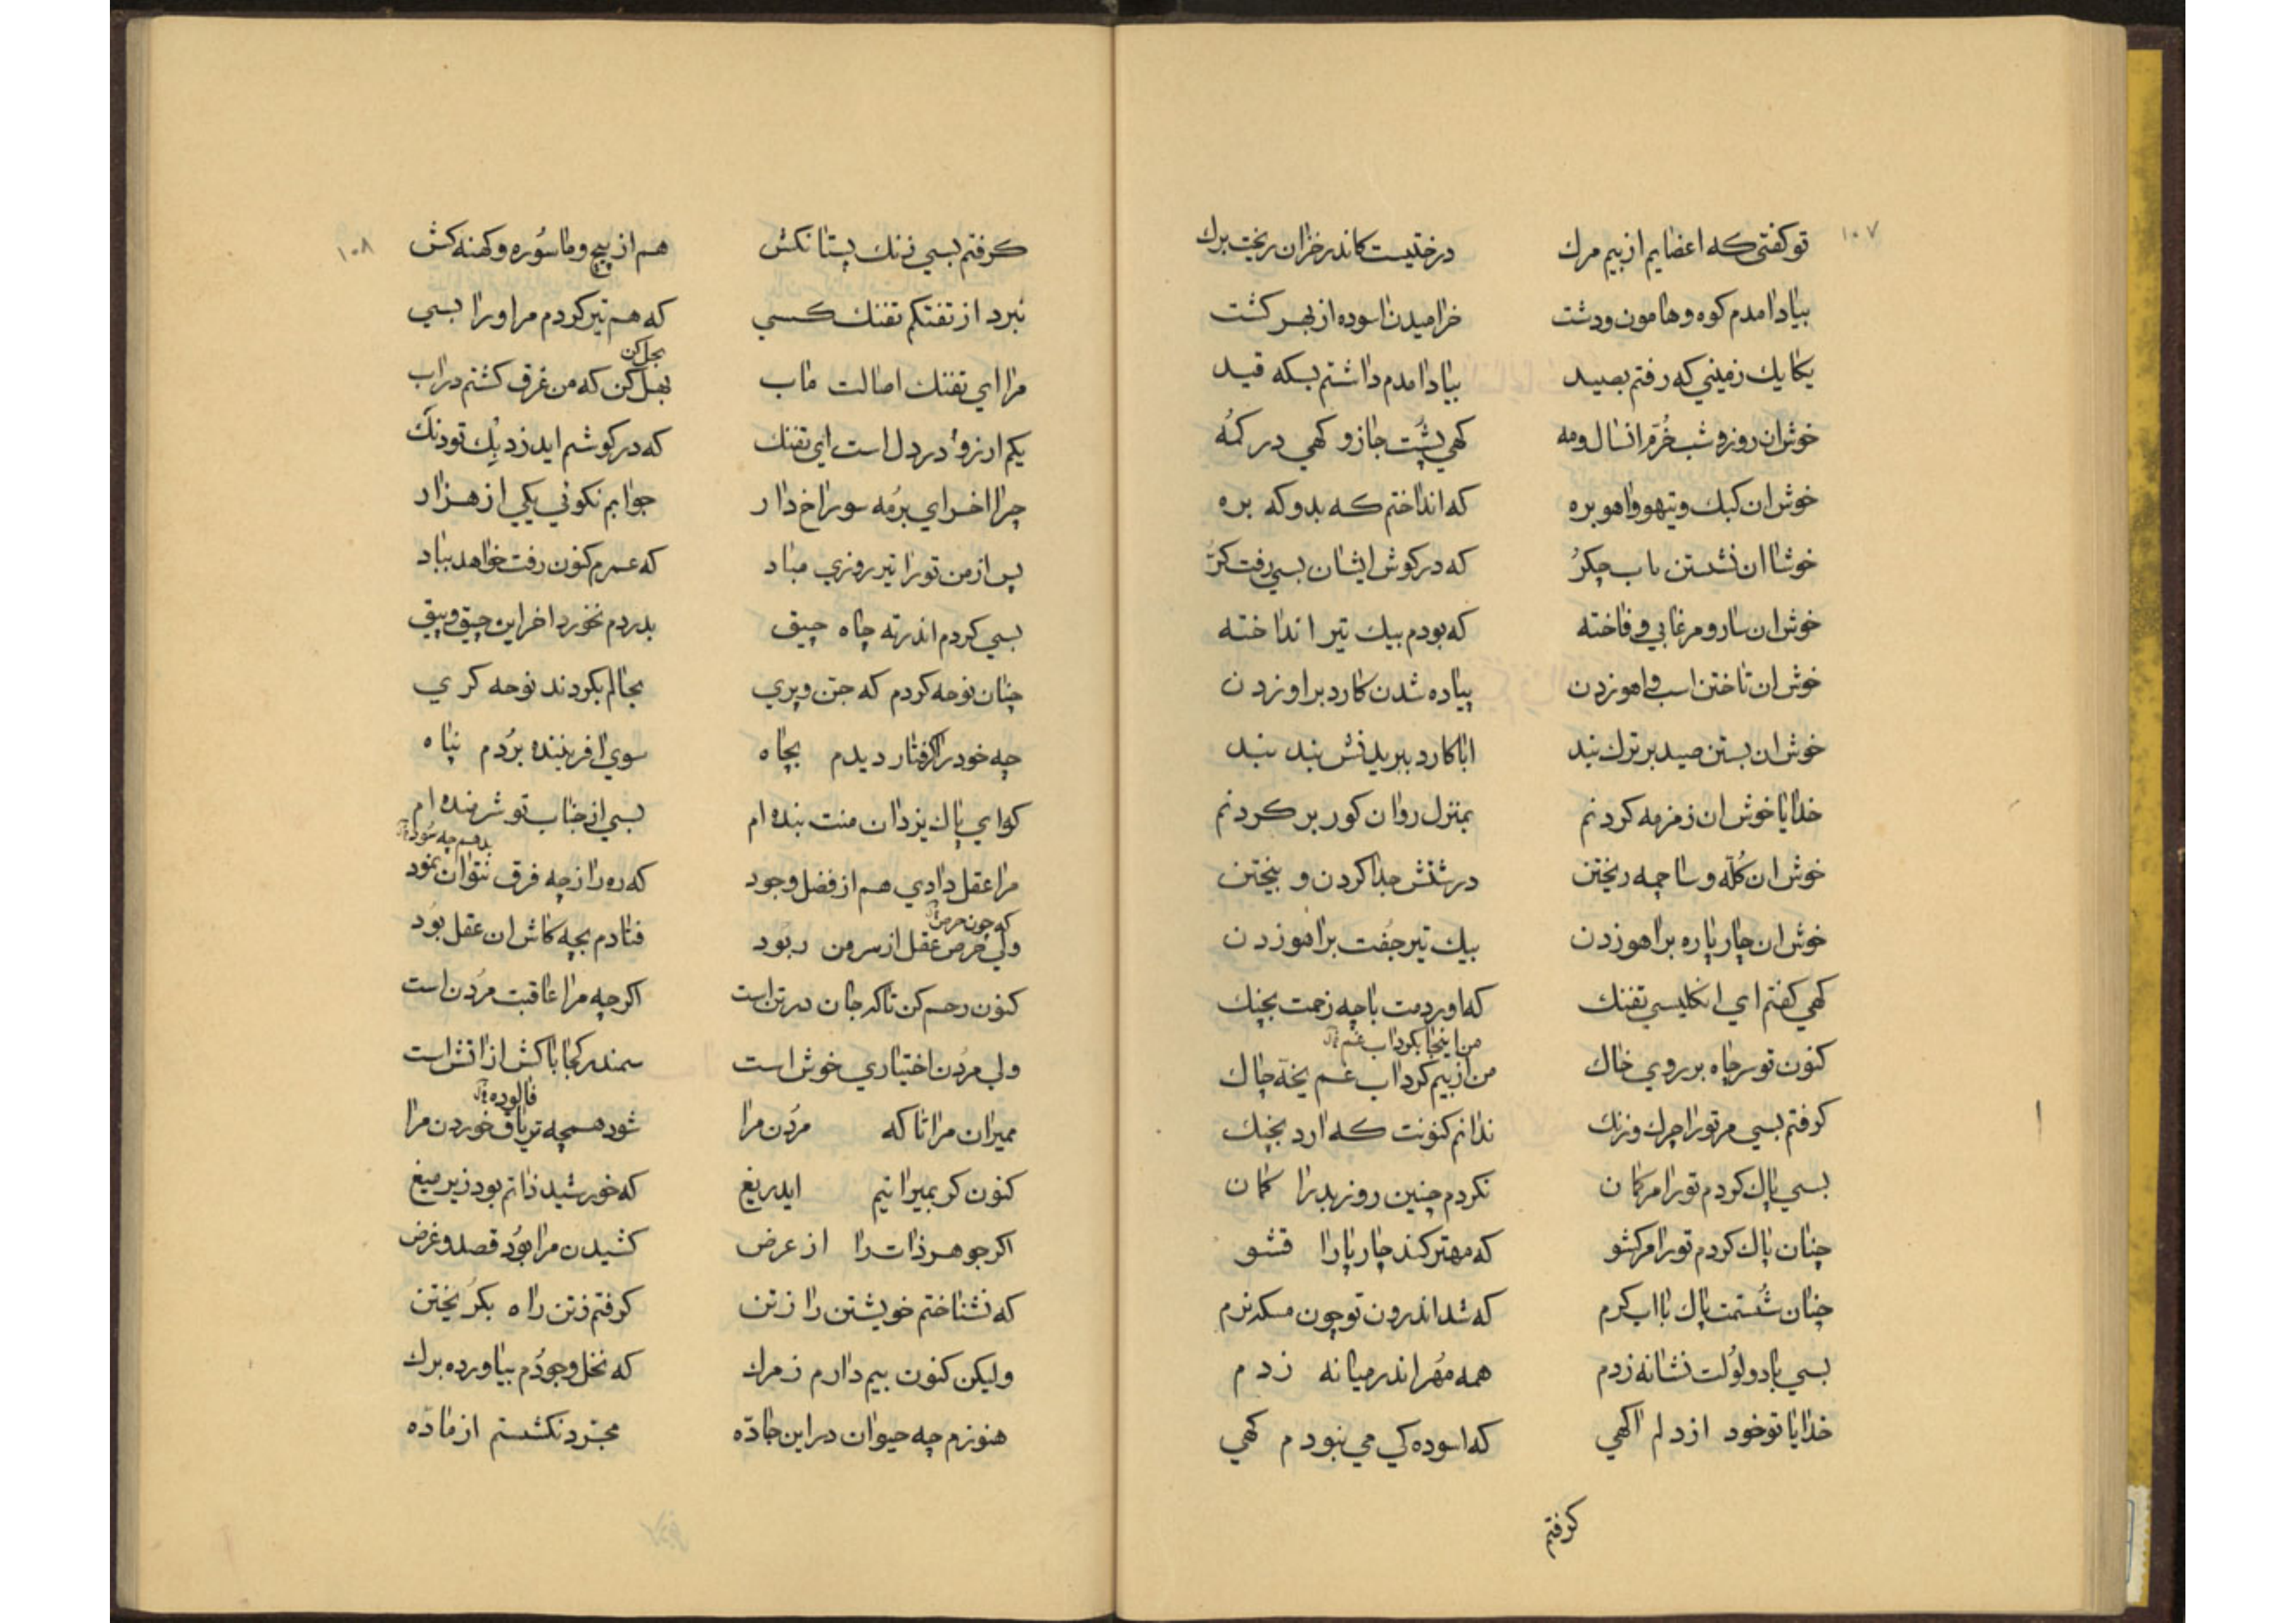 ١٠٧
توکفتی که اعضایم از بیم مرك درختیست کاندر خزان ریخت برك
بیاد امدم کوه و هامون و دشت خرامیدن اسوده از بهر کشت
یکایك زمینی که رفتم بصید بیاد امدم داشتم بسکه قید
خوش ان روز و شب خرّم انسال و مه کهی پشت جاز و کهی در کمه
خوش ان کبك و تیهو و اهو بره که انداختم که بدو که بره
خوشا ان نشستن باب جکر که در کوش ایشان بسی رفت کر
خوش ان سار و مرغابی و فاخته که بودم بیك تیر انداخته
خوش ان تاختن اسب و اهو زدن پیاده شدن کارد بر او زدن
خوش ان بستن صید بر ترك بند ابا کارد ببریدنش بند بند
خدایا خوش ان زمزمه کردنم بمنزل روان کور بر کردنم
خوش ان کلّه و ساجمه ریختن درشتش جدا کردن و بیختن
خوش ان چار پاره بر اهو زدن بیك تیر جُفت بر اهو زدن
کهی کفتم ای انکلیسی تفنك که اوردمت باچه زحمت بچنك
من اینجا بکرداب غم
کنون تو سر چاه بر روی خاك من از بیم کرداب غم یخه چاك
کرفتم بسی مر تورا چرك و زنك ندانم کنونت که ارد بچنك
بسی پاك کردم تورا مر کمان نکردم چنین روز بد را کمان
چنان پاك کردم تورا مر کشو که مهتر کند چار پا را قشو
چنان شُستمت پاك با اب کرم که شد اندرون تو چون مسکه نرم
بسی باد و لولت نشانه زدم همه مُهر اندر میانه زدم
خدایا تو خود از دلم اکهی که اسوده کی می نبودم کهی
کرفتم
١٠٨
کرفتم بسی زنك پستانکش هم از پیچ و ماسوره و کهنه کش
نبرد از تفنکم تفنك کسی که هم تیر کردم مر او را بسی
بحل کن
مرا ای تفنك اصالت ماب بهل کن که من غرق کشتم در اب
یکم ارزو در دل است ای تفنك که در کوشم اید ز دیك تو دنك
چرا اخر ای برمه سوراخ دار جوابم نکوئی یکی از هزار
پس از من تورا تیر روزی مباد که عمرم کنون رفت خواهد بباد
بسی کردم اندر ته چاه جیق بدردم نخورد اخر این جیق و بیق
چنان نوحه کردم که جن و پری بحالم بکردند نوحه کری
چه خود را کرفتار دیدم بچاه سوی افریننده بردم پناه
کوای پاك یزدان منت بنده ام بسی از جناب تو شرمنده ام
بدهم چه سود
مرا عقل دادی هم از فضل وجود که ره را ز چه فرق نتوان نمود
که چون حرص
ولی حرص عقل از سر من ربود فتادم بچه کاش ان عقل بود
کنون رحم کن تاکه جان در تن است اکر چه مرا عاقبت مردن است
ولی مردن اختیاری خوش است سمندر کجا باکش از اتش است
فالوده
ممیران مرا تا که مردن مرا شود همچه تریاق خوردن مرا
کنون کر بمیرانیم ایدریغ که خورشید ذاتم بود زیر میغ
اکر جوهر ذات را از عرض کشیدن مرا بود قصد و غرض
که نشناختم خویشتن را ز تن کرفتم ز تن راه بکریختن
ولیکن کنون بیم دارم ز مرك که نخل وجودم بیاورده برك
هنوزم چه حیوان در این جاده مجرّد نکشتم از مادّه